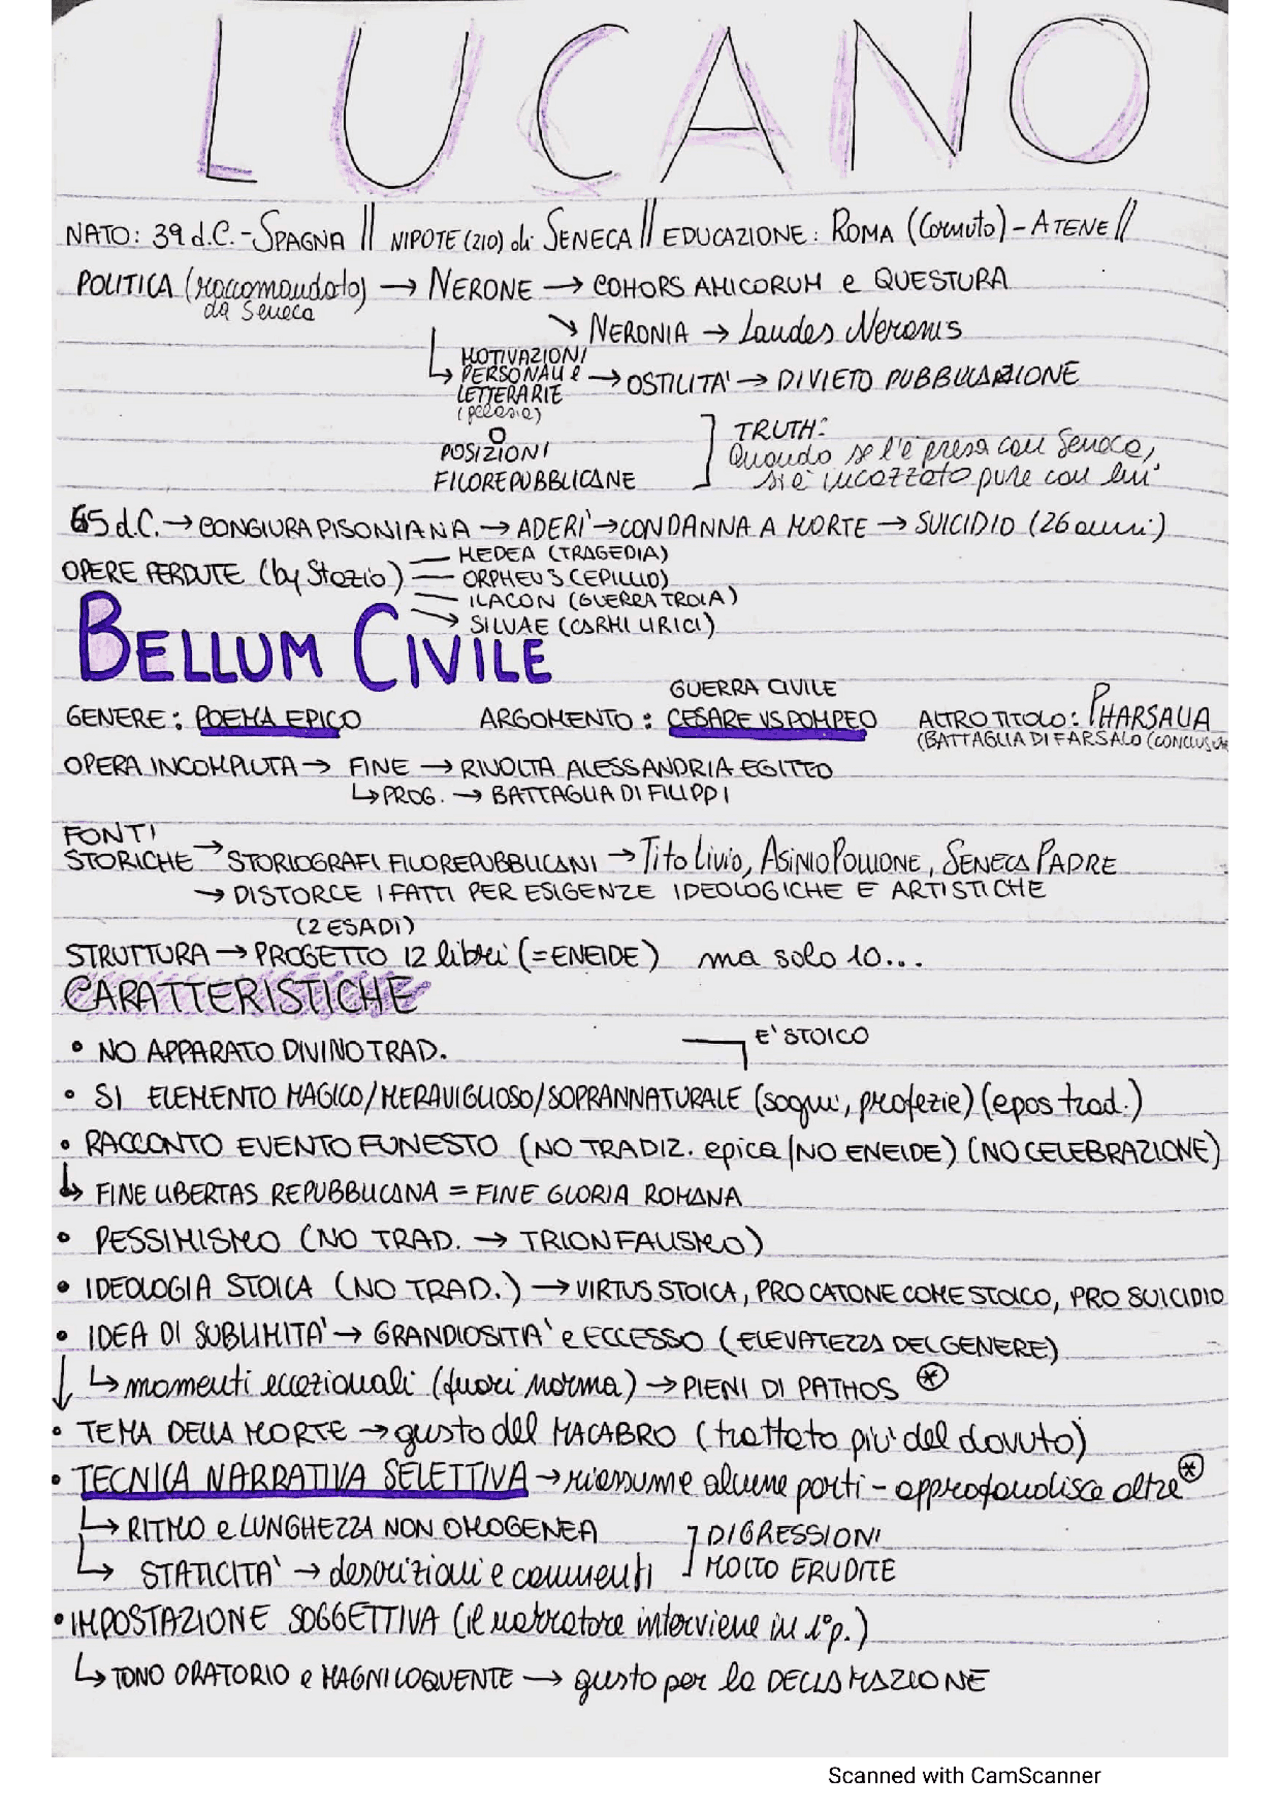 LUCANO
NATO: 39 d.C. - SPAGNA || NIPOTE (ZIO) di SENECA || EDUCAZIONE: ROMA (Cornuto) - ATENE ||
POLITICA (raccomandato) → NERONE → COHORS AMICORUM e QUESTURA
da Seneca
↘ NERONIA → Laudes Neronis
MOTIVAZIONI
↳ PERSONALI e → OSTILITA' → DIVIETO PUBBLICAZIONE
LETTERARIE
(gelosia)
O
POSIZIONI
FILOREPUBBLICANE
TRUTH:
Quando se l'è presa con Seneca,
si è incazzato pure con lui
65 d.C. → CONGIURA PISONIANA → ADERI' → CONDANNA A MORTE → SUICIDIO (26 anni)
OPERE PERDUTE (by Stazio)
MEDEA (TRAGEDIA)
ORPHEUS (EPILLIO)
ILACON (GUERRA TROIA)
→ SILVAE (CARMI LIRICI)
BELLUM CIVILE
GENERE: POEMA EPICO
GUERRA CIVILE
ARGOMENTO: CESARE VS POMPEO
ALTRO TITOLO: PHARSALIA
(BATTAGLIA DI FARSALO (CONCLUSIVA
OPERA INCOMPIUTA → FINE → RIVOLTA ALESSANDRIA EGITTO
↳ PROG. → BATTAGLIA DI FILIPPI
FONTI
STORICHE → STORIOGRAFI FILOREPUBBLICANI → Tito Livio, ASINIO POLLIONE, SENECA PADRE
→ DISTORCE I FATTI PER ESIGENZE IDEOLOGICHE E ARTISTICHE
(2 ESADI)
STRUTTURA → PROGETTO 12 libri (=ENEIDE) ma solo 10...
CARATTERISTICHE
• NO APPARATO DIVINO TRAD.
E' STOICO
• SI ELEMENTO MAGICO/MERAVIGLIOSO/SOPRANNATURALE (sogni, profezie) (epos trad.)
• RACCONTO EVENTO FUNESTO (NO TRADIZ. epica/NO ENEIDE) (NO CELEBRAZIONE)
↳ FINE LIBERTAS REPUBBLICANA = FINE GLORIA ROMANA
• PESSIMISMO (NO TRAD. → TRIONFALISMO)
• IDEOLOGIA STOICA (NO TRAD.) → VIRTUS STOICA, PRO CATONE COME STOICO, PRO SUICIDIO
• IDEA DI SUBLIMITA' → GRANDIOSITA' e ECCESSO (ELEVATEZZA DEL GENERE)
↳ momenti eccezionali (fuori norma) → PIENI DI PATHOS *
• TEMA DELLA MORTE → gusto del MACABRO (trattato più del dovuto)
• TECNICA NARRATIVA SELETTIVA → riassume alcune parti - approfondisce altre *
↳ RITMO e LUNGHEZZA NON OMOGENEA
↳ STATICITA' → descrizioni e commenti
DIGRESSIONI
MOLTO ERUDITE
• IMPOSTAZIONE SOGGETTIVA (il narratore interviene in 1° p.)
↳ TONO ORATORIO e MAGNILOQUENTE → gusto per la DECLAMAZIONE
Scanned with CamScanner